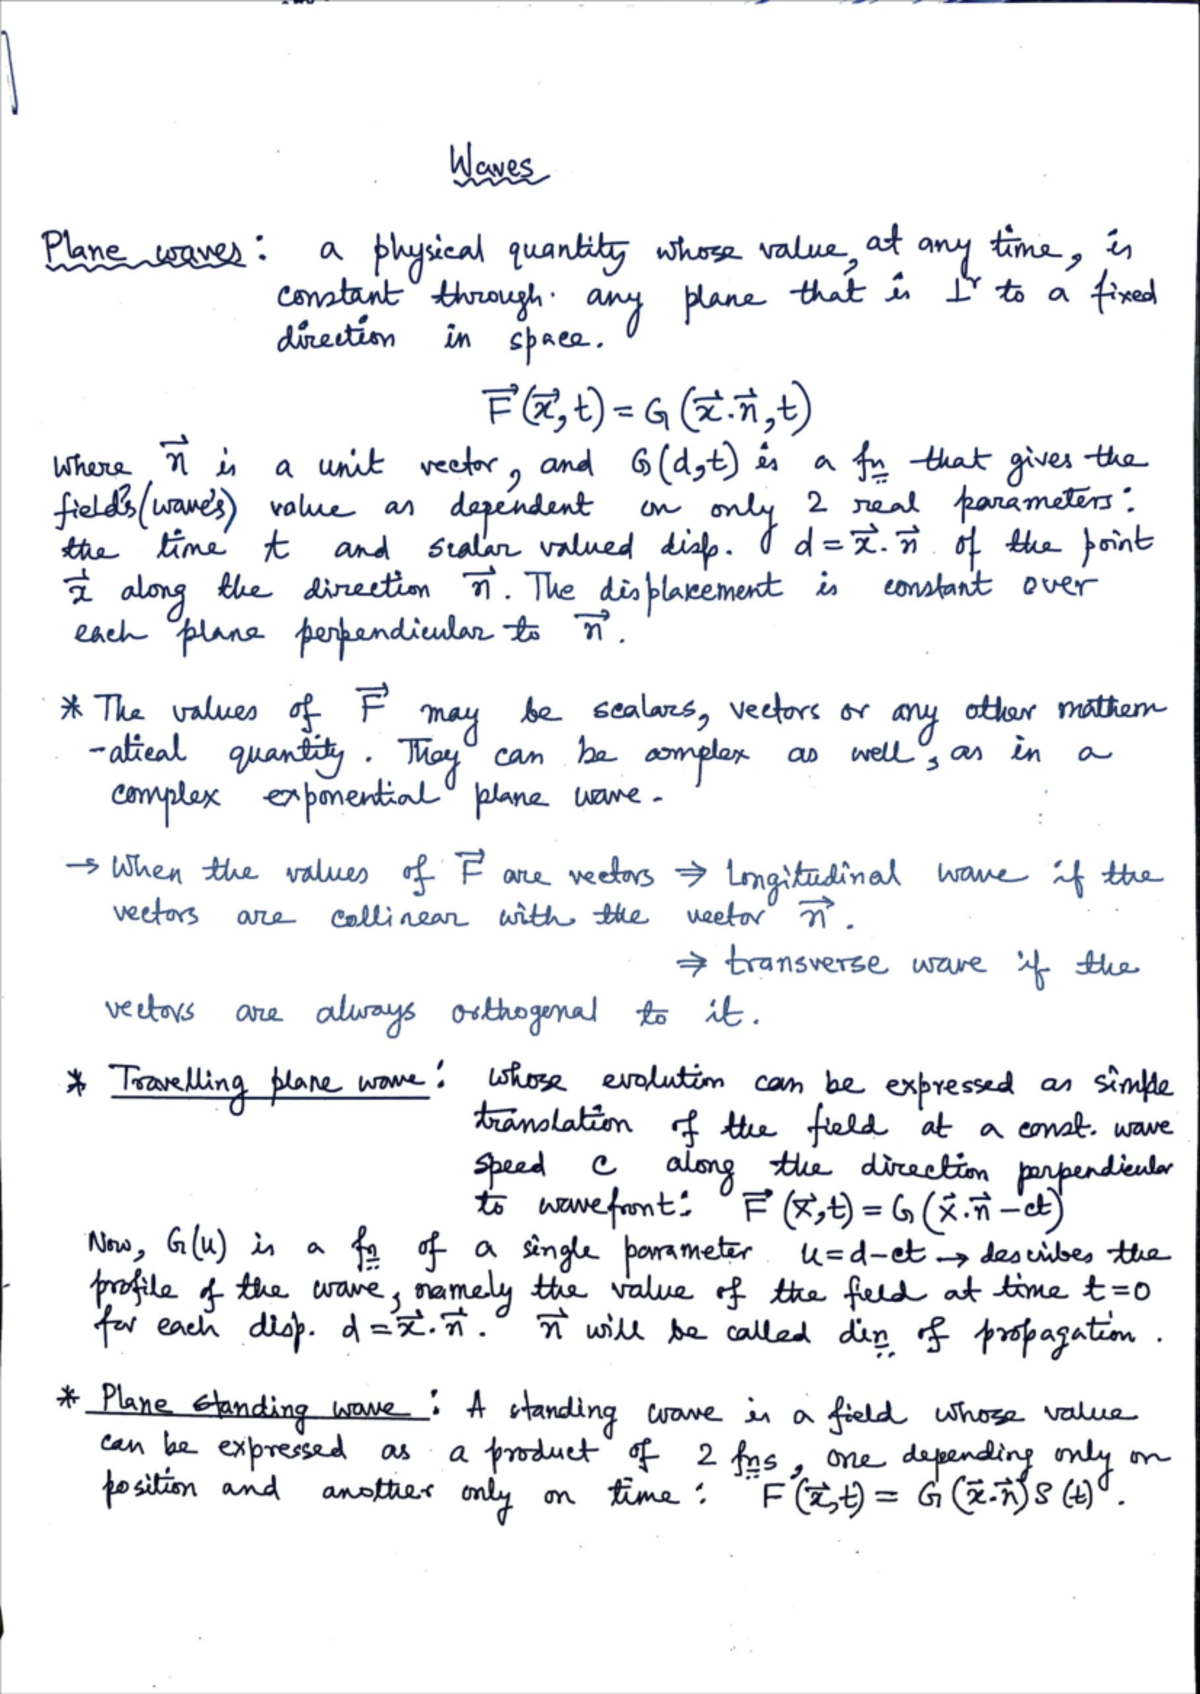 Waves
Plane waves: a physical quantity whose value, at any time, is
constant through any plane that is ⊥r to a fixed
direction in space.
F⃗(x⃗,t) = G(x⃗.n⃗,t)
where n⃗ is a unit vector, and G(d,t) is a fn that gives the
field's (wave's) value as dependent on only 2 real parameters:
the time t and scalar valued disp. d = x⃗.n⃗ of the point
x⃗ along the direction n⃗. The displacement is constant over
each plane perpendicular to n⃗.
* The values of F⃗ may be scalars, vectors or any other mathem
-atical quantity. They can be complex as well, as in a
complex exponential plane wave.
→ When the values of F⃗ are vectors ⇒ Longitudinal wave if the
vectors are collinear with the vector n⃗.
⇒ transverse wave if the
vectors are always orthogonal to it.
* Travelling plane wave: whose evolution can be expressed as simple
translation of the field at a const. wave
speed c along the direction perpendicular
to wavefront: F⃗(x⃗,t) = G(x⃗.n⃗ - ct)
Now, G(u) is a fn of a single parameter u = d-ct → describes the
profile of the wave, namely the value of the field at time t=0
for each disp. d = x⃗.n⃗. n⃗ will be called dirn of propagation.
* Plane standing wave: A standing wave is a field whose value
can be expressed as a product of 2 fns, one depending only on
position and another only on time: F(x⃗,t) = G(x⃗.n⃗) S(t).